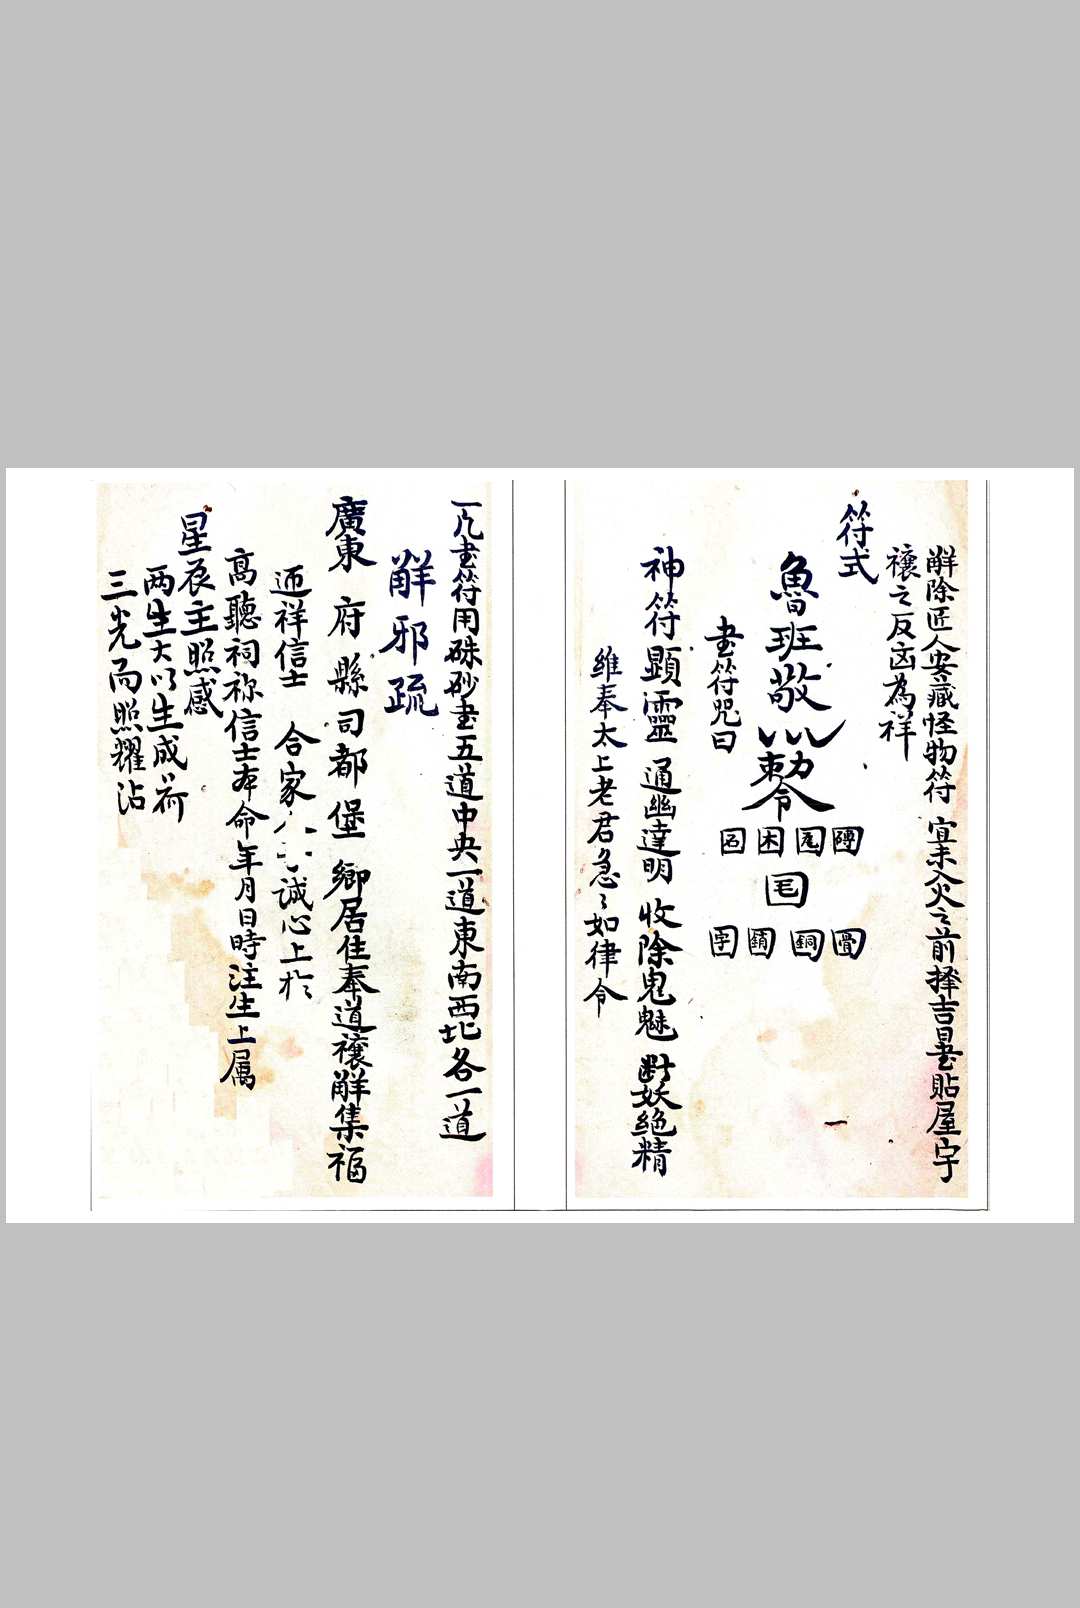 解除匠人安藏怪物符 宜未入火之前擇吉日晝貼屋宇
禳之反凶為祥
符式
魯班敬
勅令
困
銅
書符咒曰
神符顯靈 通幽達明 收除鬼魅 斷妖絕精
維奉太上老君急々如律令
一凡書符用硃砂書五道中央一道東南西北各一道
解邪疏
廣東 府 縣 司 都 堡 鄉居住奉道禳解集福
迊祥信士 合家 誠心上於
高聽祠祢信士本命年月日時注生上属
星辰主照感
两生大以生成荷
三光而照耀沾